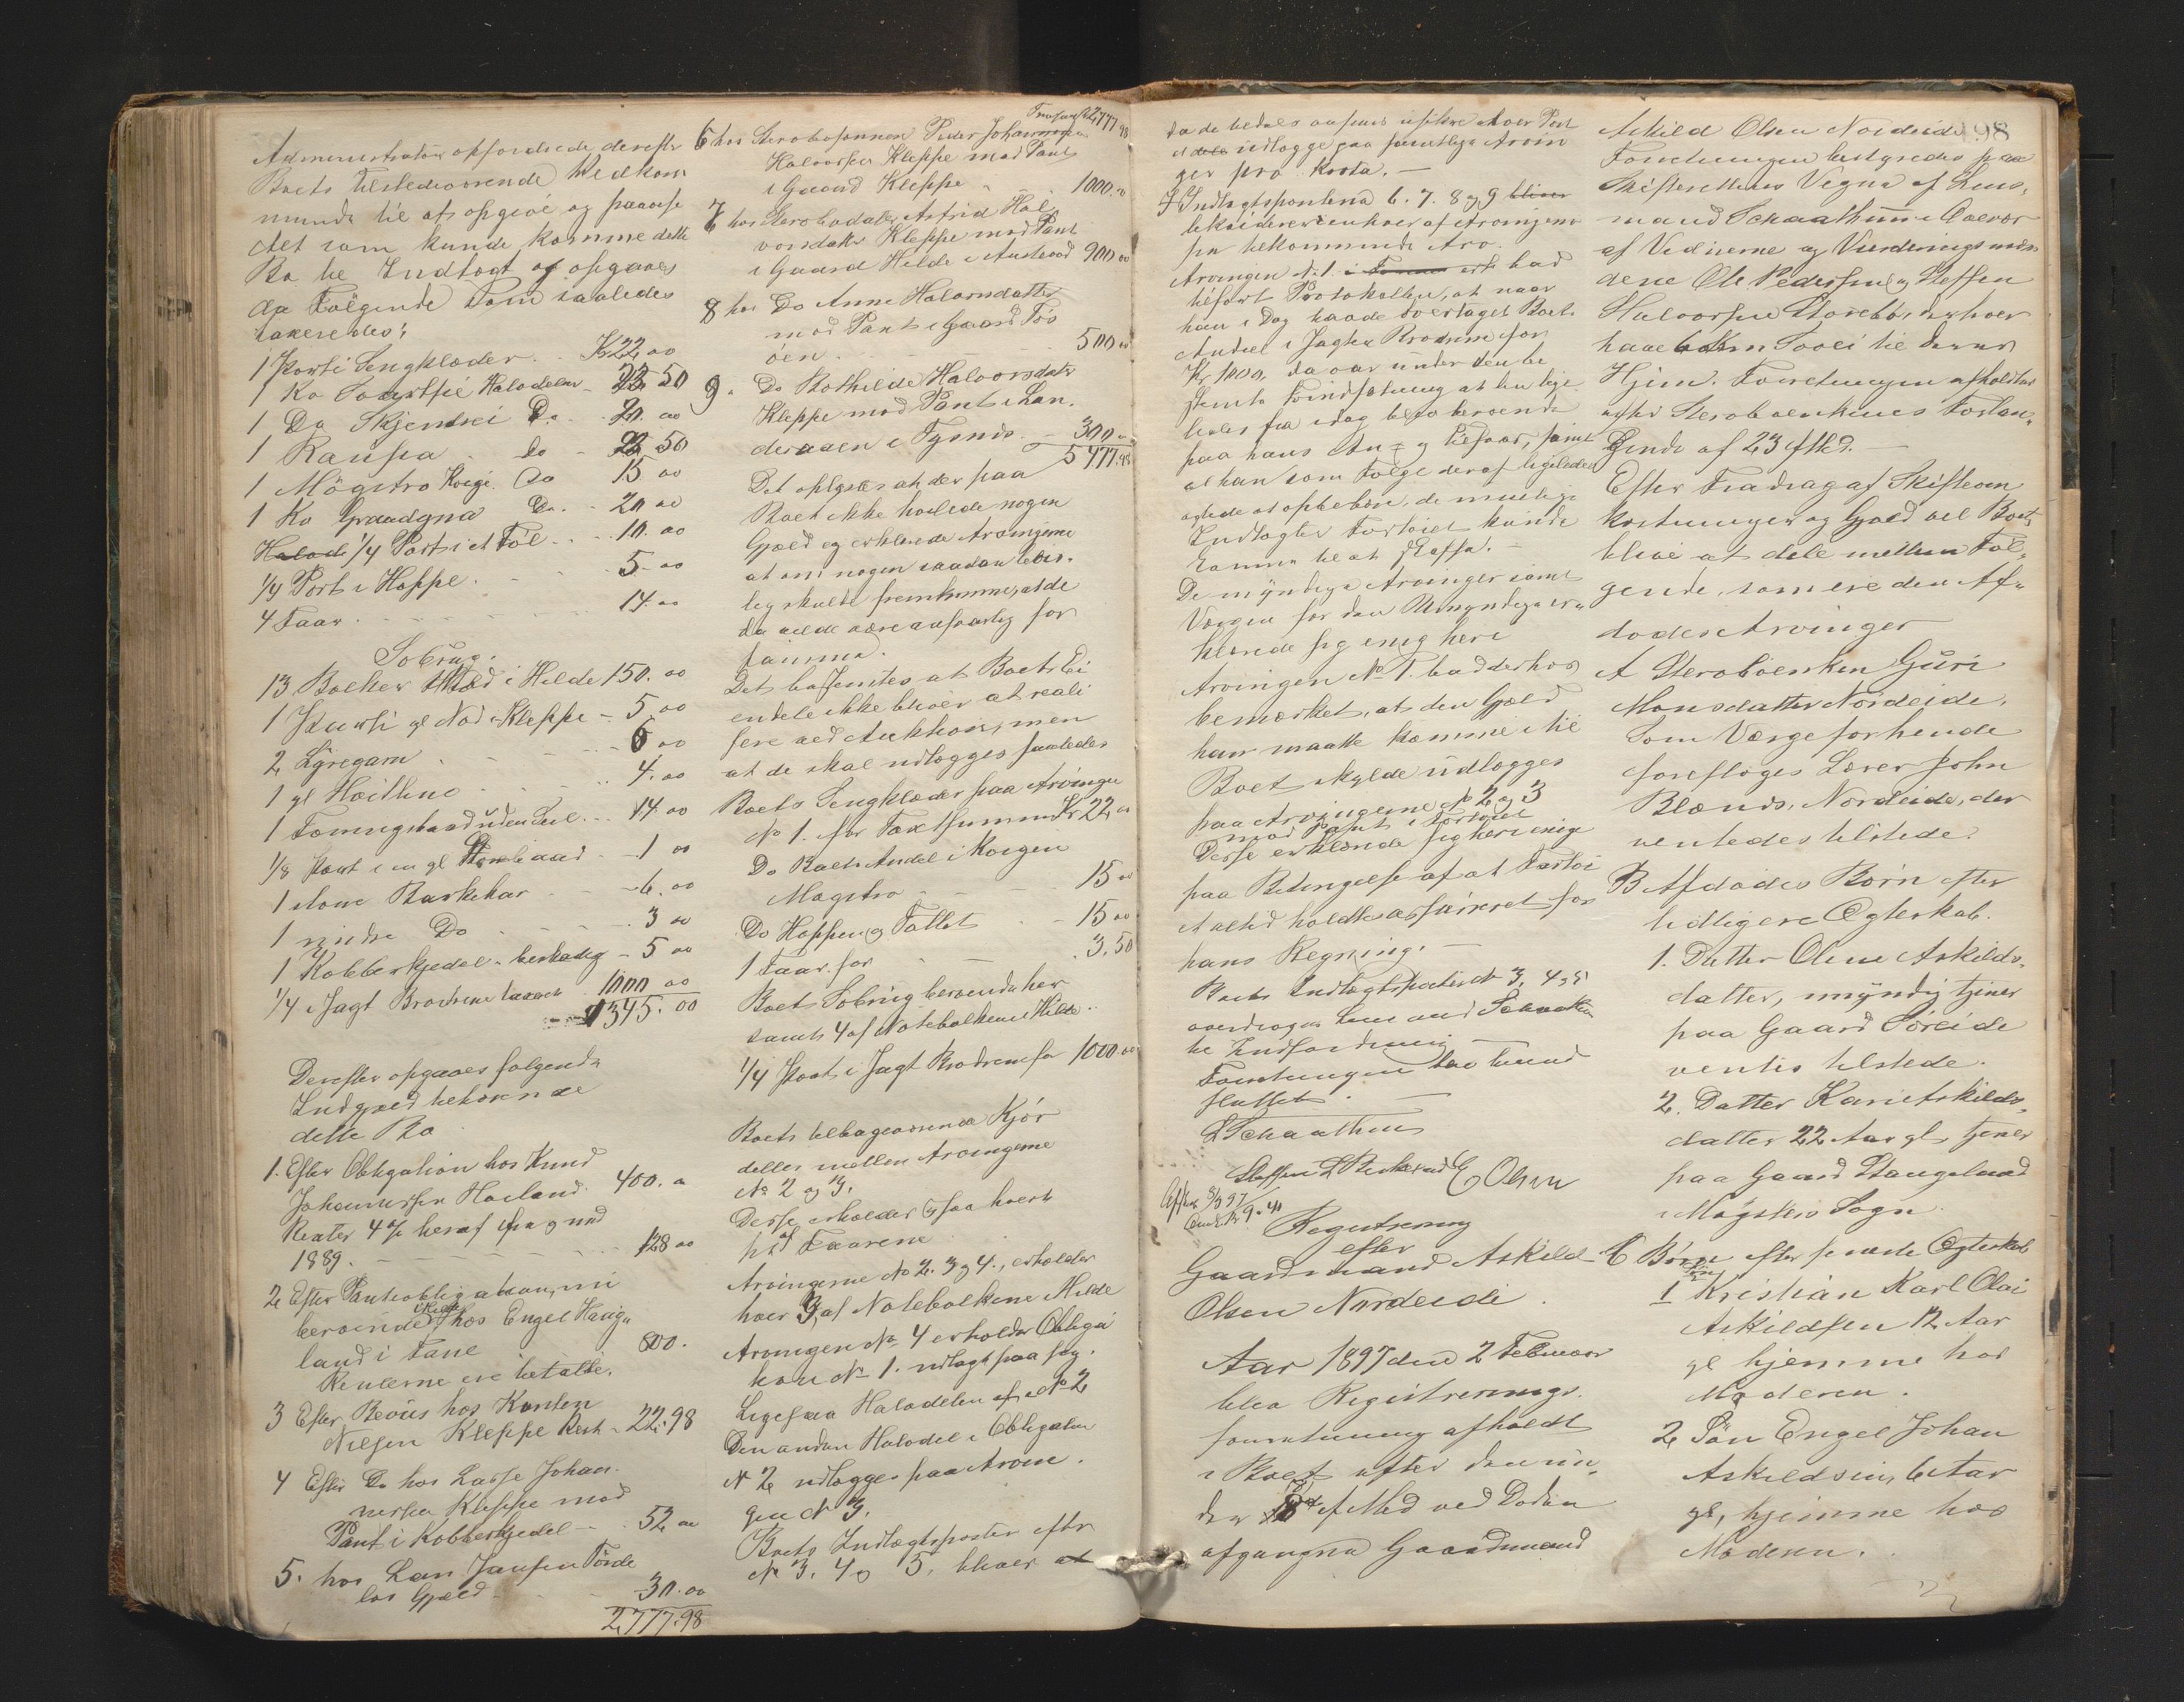 Administrator opfordrede derefter
Boets tilstedeværende Vedkom
mende til at opgive og paavise
det som kunde komme dette
Bo til Indtægt og opgaves
da Følgende som saaledes
taxeredes:
1 Parti Sengklæder Kr 22,00
1 Ko Halvdelen 50
1 Do Skjendrei Do 20 00
1 Raupia do 50
1 Mögstro Kvige do 15 00
1 Ko Graadgna Do 20 00
Halvd 1/4 Part i et Föl 10.00
1/4 Part i Hoppe 5.00
4 Faar 14.00
Söbrug.
13 Bolker i Hilde 150.00
1 gl Nod i Kleppe 5 00
2 Lyregarn 6 00
1 gl 4.00
1 Færingsbaad uden Seil 14 00
1/8 Part i en gl 1 00
1 stone Barkekar 6.00
1 mindre Do 3 00
1 Kobberkjedel beskadig 5 00
1/4 Jagt Brødrene taxeret 1000 00
1345.00
Derefter opgaves følgende
Indgjæld tilhørende
dette Bo
1. Efter Obligation hos Knud
Johannessen Havland 400.
Renter 4 % heraf fra og med
1889. 128 00
2, Efter Panteobligation, nu
beroende hos Engel Hauge
land i Fane 800.
Renterne ere betalte.
3 Efter Bevis hos Karsten
Nilsen Kleppe Rest 22.98
4 Efter Do hos Lasse Johan
nessen Kleppe mod
Pant i Kobberkjedel 52 00
5. hos Lars Jansen Törde
løs Gjæld 30.00
2,777.98
Transport 2,777 98
6 hos Stervbosønnen Peder Johannes
Halvorsen Kleppe mod Pant
i Gaard Kleppe 1000.00
7 hos Stervbodatter Astrid Hal
vorsdatter Kleppe mod Pant
i Gaard Hilde i Austevold 900 00
8 hos Do Anne Halvorsdatter
mod Pant i Gaard
øen 500 00
9. Do Bothilde Halvorsdatter
Kleppe mod Pant i Lan
deraaen i Tysnes 300
5477.98
Det oplystes at der paa
Boet ikke heftede nogen
Gjæld og erklærede Arvingerne
at om nogen saadan lovs
lig skulde fremkomme, at de
da vilde være ansvarlig for
samme.
Det besluttes at Boets Ei
endele ikke bliver at reali
sere ved Auktion, men
at de skal udlægges saaledes
Boets Sengklæder paa Arvingen
No 1. for Taxtsummen Kr 22,00
Do Boets Andel i Kvigen
Mogstro 15 00
Do Hoppen og Føllet 15 00
1 Faar for 3,50
Boets Söbrug beroende her
samt 4 af Notebolkene i Hilde
1/4 Part i Jagt Brødrene for 1000.00
Boets tilbageværende Kjör
deles mellem Arvingerne
No 2 og 3.
Disse erholder ogsaa hvert
af Faarene
Arvingerne No 2. 3 og 4, erholder
hver 3 af Notebolkene i Hilde
Arvingen No 4 erholder Obliga
tion No 1. udlagt paa sig.
Ligesaa Halvdelen af No 2
Den anden Halvdel i Obligation
No 2, udlægges paa Arvin
gen No 3.
Boets Indtægtsposter efter
No 3, 4 og 5, bliver at
da de ansees usikre
udlægge paa samtlige Arvin
ger pro kvota.
Indtægtsposterne 6. 7. 8 og 9 bliver
enhver af Arvingerne
paa tilkommende Arv.
Arvingen No 1. bad
tilført Protokollen, at naar
han i Dag havde overtaget Boets
Andel i Jagten Brødrene for
Kr. 1000, da var under den be
stemte Forudsætning at den lige
ledes fra idag blev beroende
paa hans An- og Tilsvar, samt
at han som Følge deraf ligeledes
agtede at oppebære de mulige
Indtægter Fartøiet kunde
komme til at skaffe.
De myndige Arvinger samt
Værgen for den Umyndige er
klærede sig enig heri
Arvingen No 1. bad derhos
bemærket, at den Gjæld
han maatte komme i til
Boet skylde udlægges
paa Arvingerne No 2 og 3
mod Pant i Fartøiet
Disse erklærede sig heri enige
paa Betingelse af at Fartøi
et altid holdtes assureret for
hans Regning.
Boets Indtægtsposter No 3, 4, 5
overdroges Lensmand Schaathun
til Indfordring
Forretningen blev hermed
sluttet.
L Schaathun
Steffen E Olsen
Registrering
efter
Gaardmand Askild
Olsen Nordeide
Aar 1897 den 2 Februar
blev Registrerings
forretning afholdt
i Boet efter den un
der 18de f Md ved Døden
afgangne Gaardmand
98
Askild Olsen Nordeide
Forretningen bestyredes paa
Skifterettens Vegne af Lens,
mand Schaathun i Overvær
af Vidnerne og Vurderingsmæn
dene Ole Pedersen og Steffen
Halvorsen Storebö, der hver
have 6 Km Sövei til deres
Hjem. Forretningen afholdtes
efter Stervboenkens Forlan,
gende af 23 f Md.
Efter Fradrag af Skifteom
kostninger og Gjæld vil Boet,
blive at dele mellem Föl,
gende, som ere den Af,
dødes Arvinger
A Stervboenken Guri
Monsdatter Nordeide,
Som Værge for hende
foresloges Lærer John
Blænes, Nordeide, der
ventedes tilstede.
B Afdødes Börn efter
tidligere Ægteskab.
1. Datter Oline Askilds,
datter, myndig tjener
paa Gaard Söreide
ventes tilstede.
2. Datter Kari Askilds,
datter 22 Aar gl tjener
paa Gaard Stangeland
i Møgsters Sogn
C Börn efter seneste Ægteskab
1 Sön Kristian Karl Olai
Askildsen 12 Aar
gl hjemme hos
Moderen.
2, Sön Engel Johan
Askildsen, 6 Aar
gl, hjemme hos
Moderen.